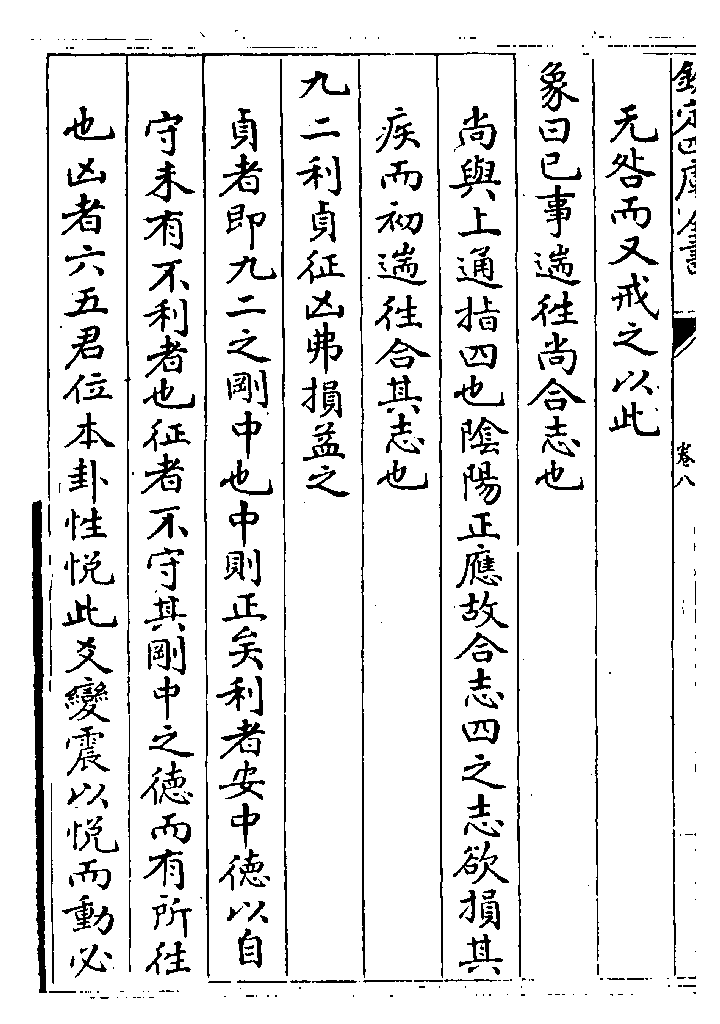 欽定四庫全書
卷八
无咎而又戒之以此
象曰已事遄徃尚合志也
尚與上通指四也陰陽正應故合志四之志欲損其
疾而初遄徃合其志也
九二利貞征凶弗損益之
貞者即九二之剛中也中則正矣利者安中徳以自
守未有不利者也征者不守其剛中之徳而有所徃
也凶者六五君位本卦性悦此爻變震以悦而動必